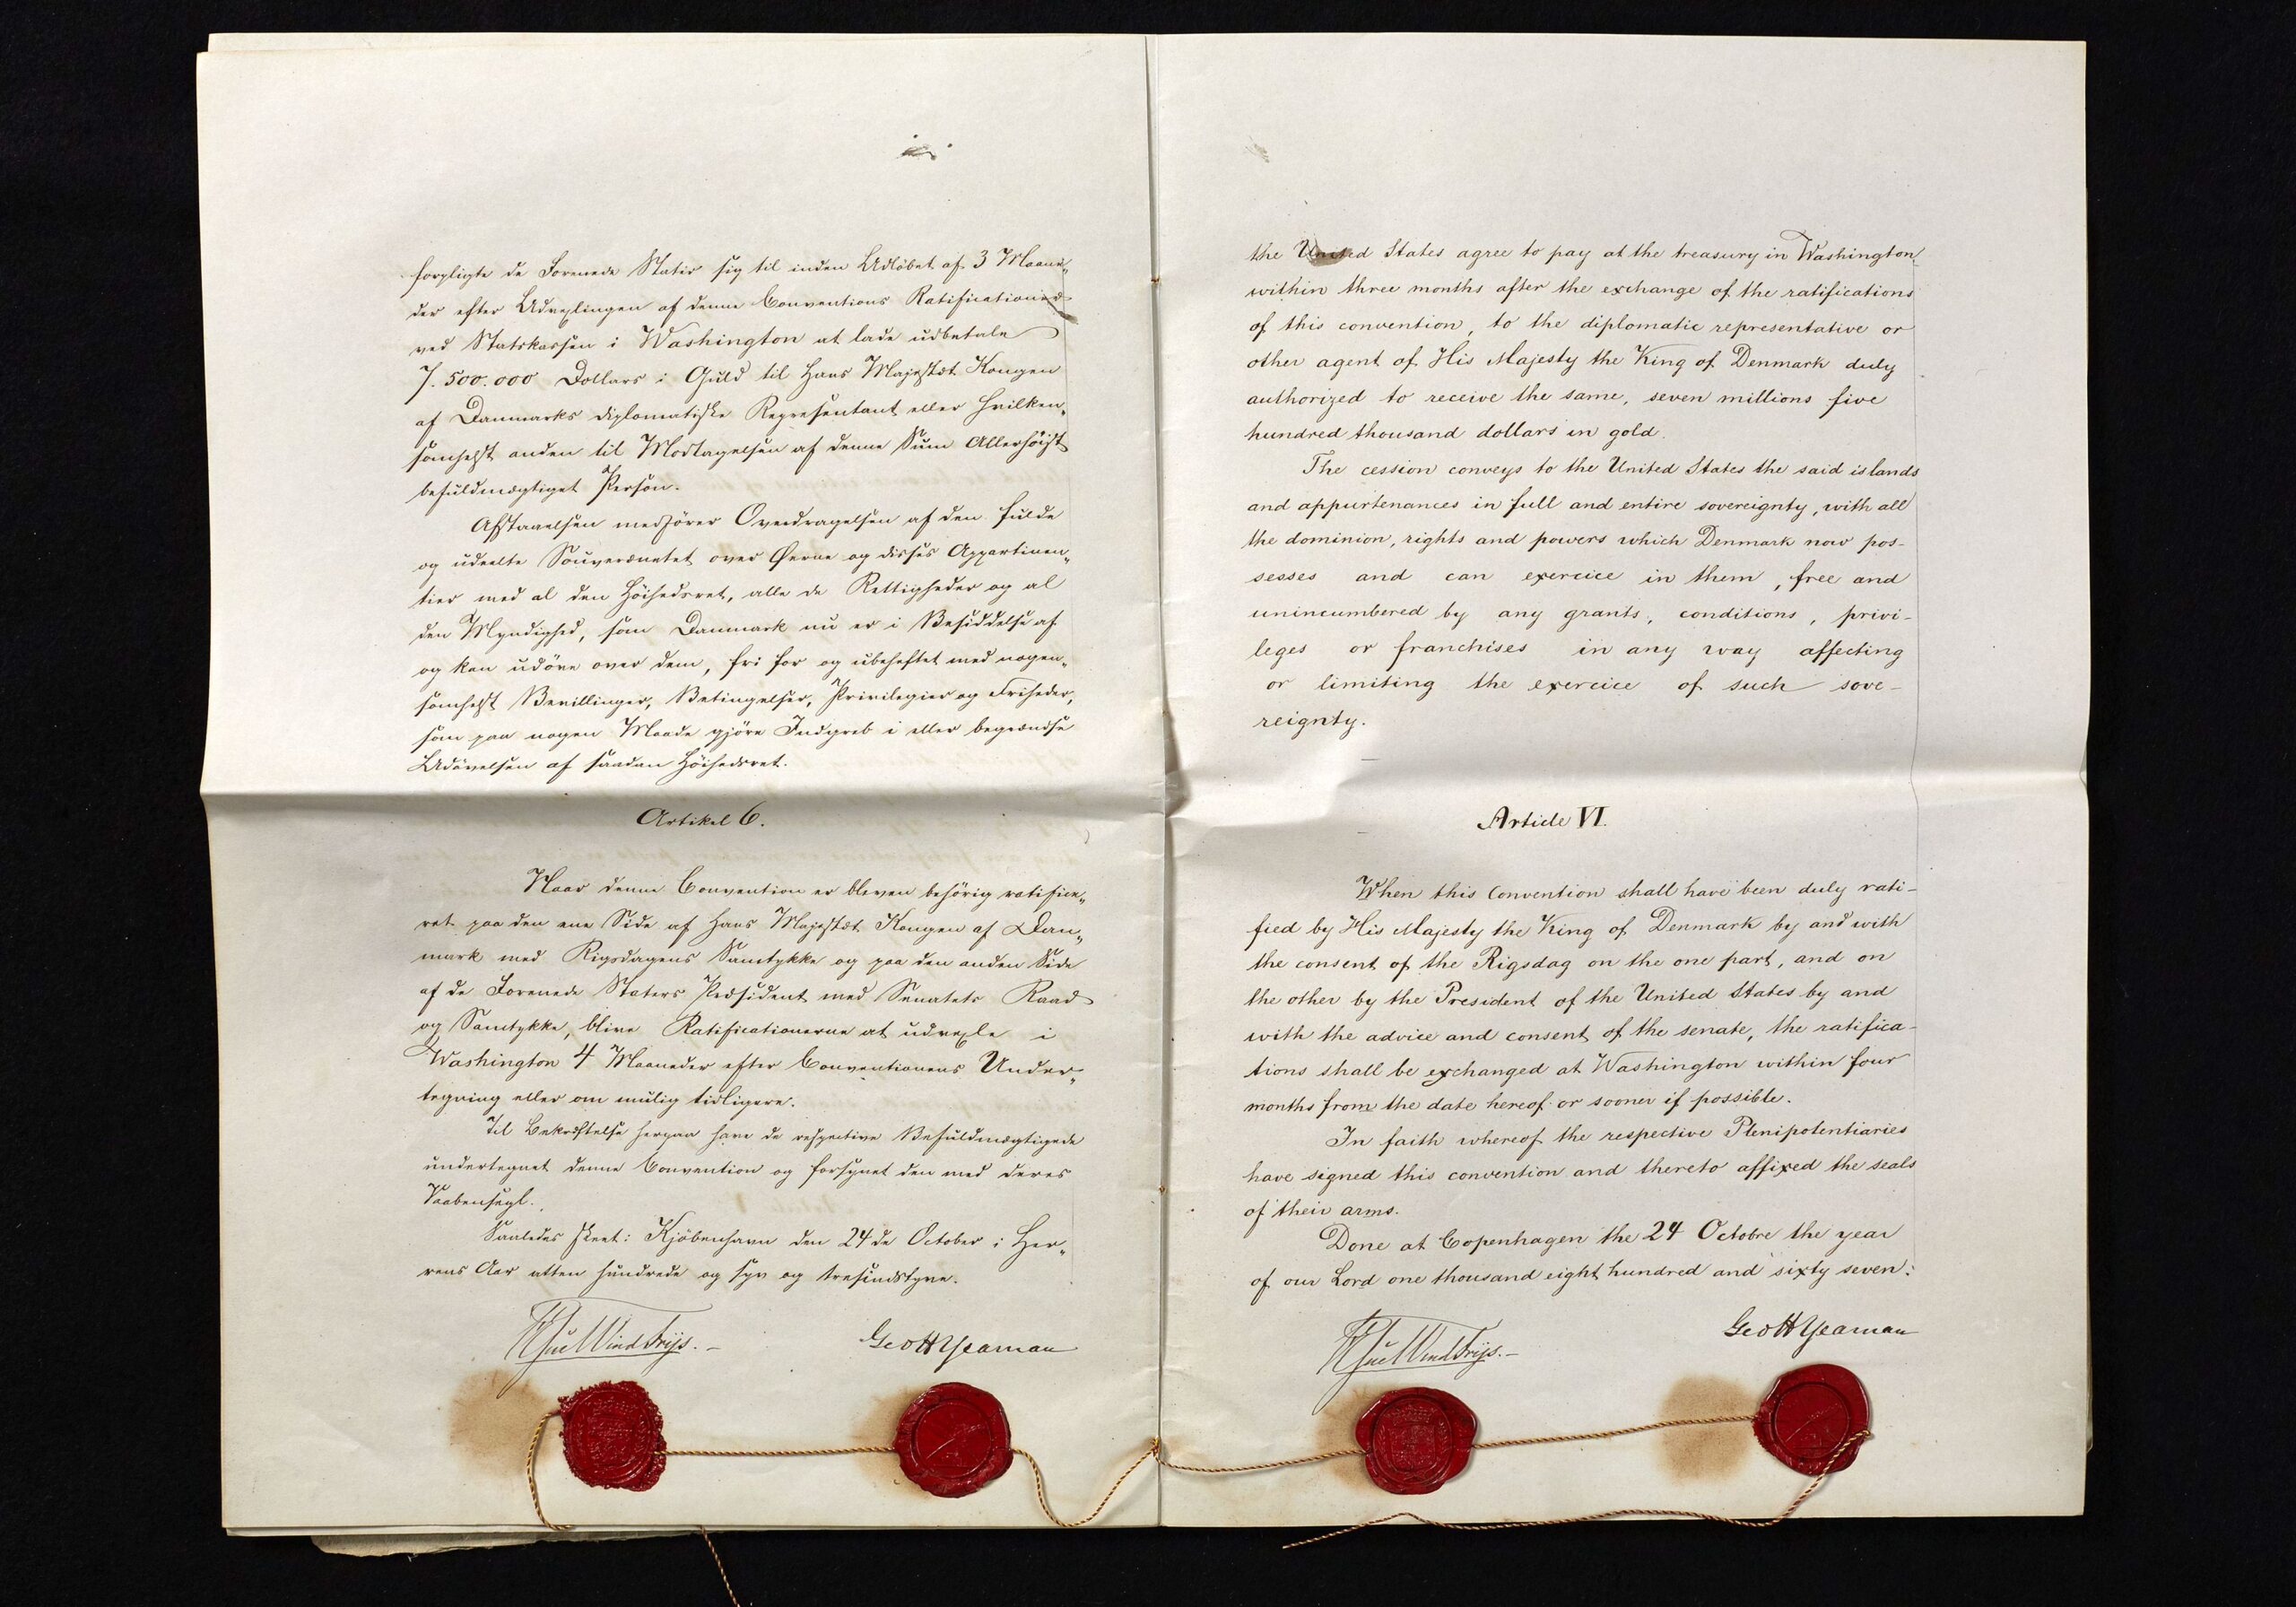 forpligte de Forenede Stater sig til inden Udløbet af 3 Maane„
der efter Udvexlingen af denne Conventions Ratificationer
ved Statskassen i Washington at lade udbetale
7.500.000 Dollars i Guld til Hans Majestæt Kongen
af Danmarks diplomatiske Repræsentant eller hvilken„
somhelst anden til Modtagelsen af denne Sum Allerhöist
befuldmægtiget Person.
Afstaaelsen medförer Overdragelsen af den fulde
og udeelte Souverænetet over Øerne og disses Appartinen„
tier med al den Höihedsret, alle de Rettigheder og al
den Myndighed, som Danmark nu er i Besiddelse af
og kan udöve over dem, fri for og ubeheftet med nogen„
somhelst Bevillinger, Betingelser, Privilegier og Friheder,
som paa nogen Maade gjöre Indgreb i eller begrændse
Udövelsen af saadan Höihedsret.
Artikel 6.
Naar denne Convention er bleven behörig ratifice„
ret paa den ene Side af Hans Majestæt Kongen af Dan„
mark med Rigsdagens Samtykke og paa den anden Side
af de Forenede Staters Præsident med Senatets Raad
og Samtykke, blive Ratificationerne at udvexle i
Washington 4 Maaneder efter Conventionens Under„
tegning eller om mulig tidligere.
Til Bekræftelse herpaa have de respective Befuldmægtigede
undertegnet denne Convention og forsynet den med deres
Vaabensegl.
Saaledes skeet i Kjöbenhavn den 24de October i Her„
rens Aar atten hundrede og syv og tresindstyve.
Juel Vind Frijs.
Geo H Yeaman
the United States agree to pay at the treasury in Washington
within three months after the exchange of the ratifications
of this convention, to the diplomatic representative or
other agent of His Majesty the King of Denmark duly
authorized to receive the same, seven millions five
hundred thousand dollars in gold.
The cession conveys to the United States the said islands
and appurtenances in full and entire sovereignty, with all
the dominion, rights and powers which Denmark now pos-
sesses and can exercice in them, free and
unincumbered by any grants, conditions, privi-
leges or franchises in any way affecting
or limiting the exercice of such sove-
reignty.
Article VI.
When this Convention shall have been duly rati-
fied by His Majesty the King of Denmark by and with
the consent of the Rigsdag on the one part, and on
the other by the President of the United States by and
with the advice and consent of the senate, the ratifica-
tions shall be exchanged at Washington within four
months from the date hereof or sooner if possible.
In faith whereof the respective Plenipotentiaries
have signed this convention and thereto affixed the seals
of their arms.
Done at Copenhagen the 24 Octobre the year
of our Lord one thousand eight hundred and sixty seven.
Juel Vind Frijs.
Geo H Yeaman